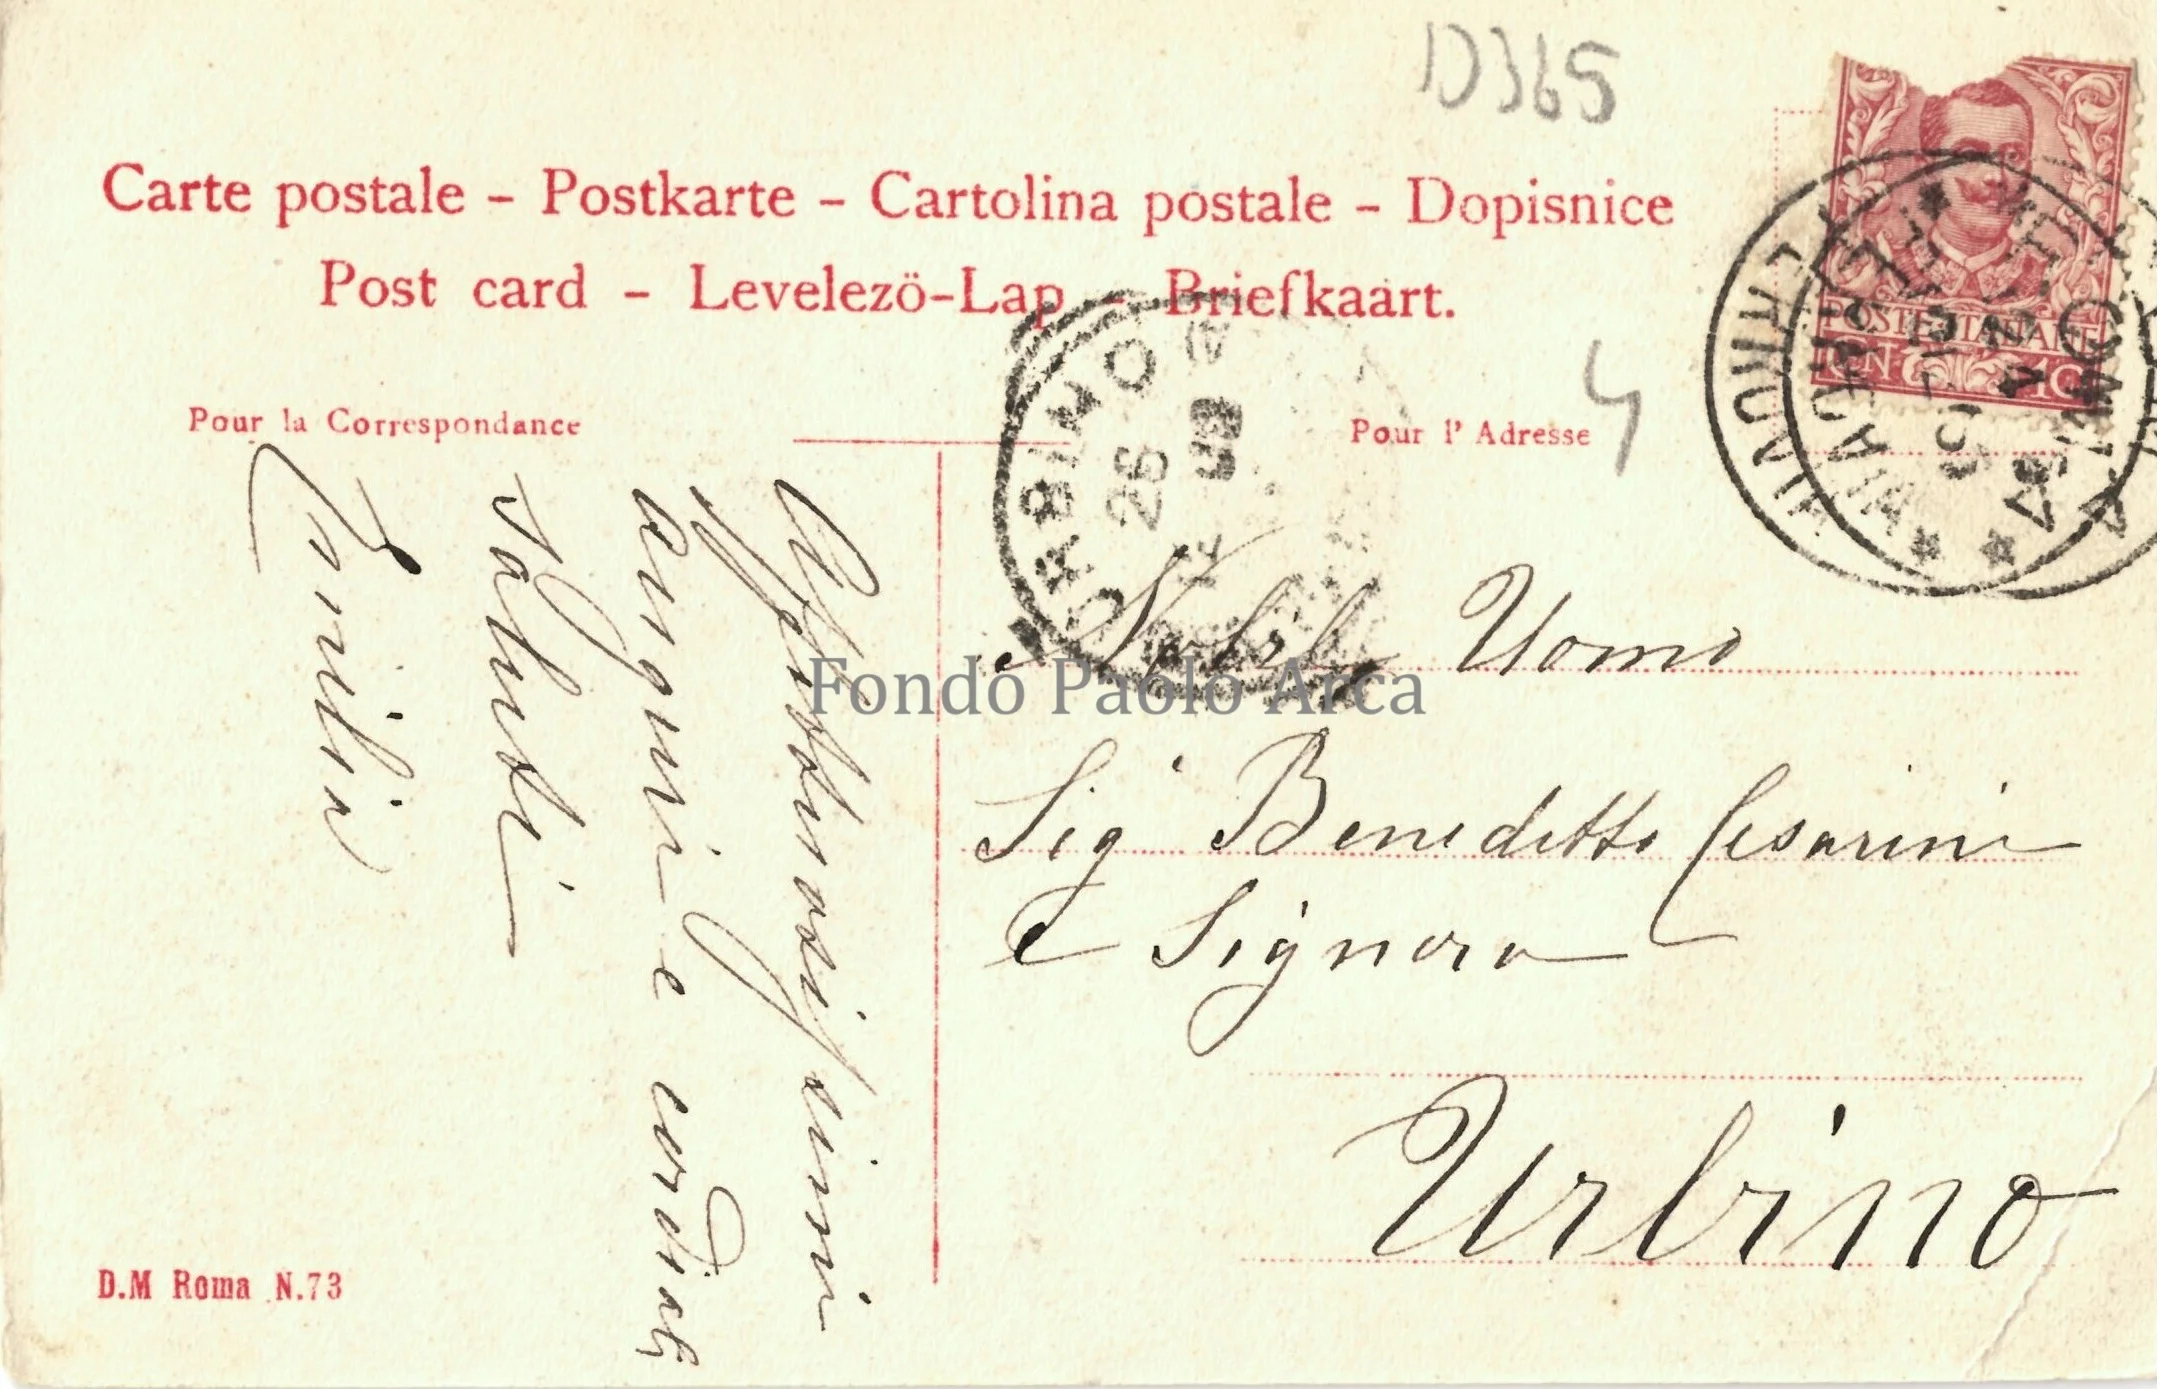 D365
Carte postale – Postkarte – Cartolina postale – Dopisnice
Post card – Levelezö-Lap – Briefkaart.
POSTE ITALIANE
CEN 10
URBINO
26
Pour la Correspondance
Pour l' Adresse
4
Affettuosissimi
auguri e cordiali
saluti
Camilla
Nobil Uomo
Sigʳ Benedetto Cesarini
e Signora
Urbino
Fondo Paolo Arca
D.M Roma N.73